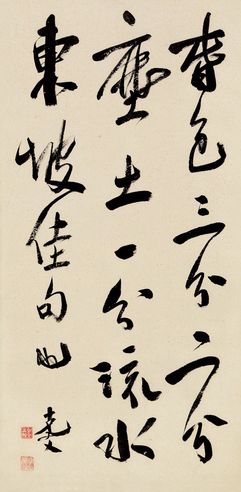 春色三分二分
塵土一分流水
東坡佳句也